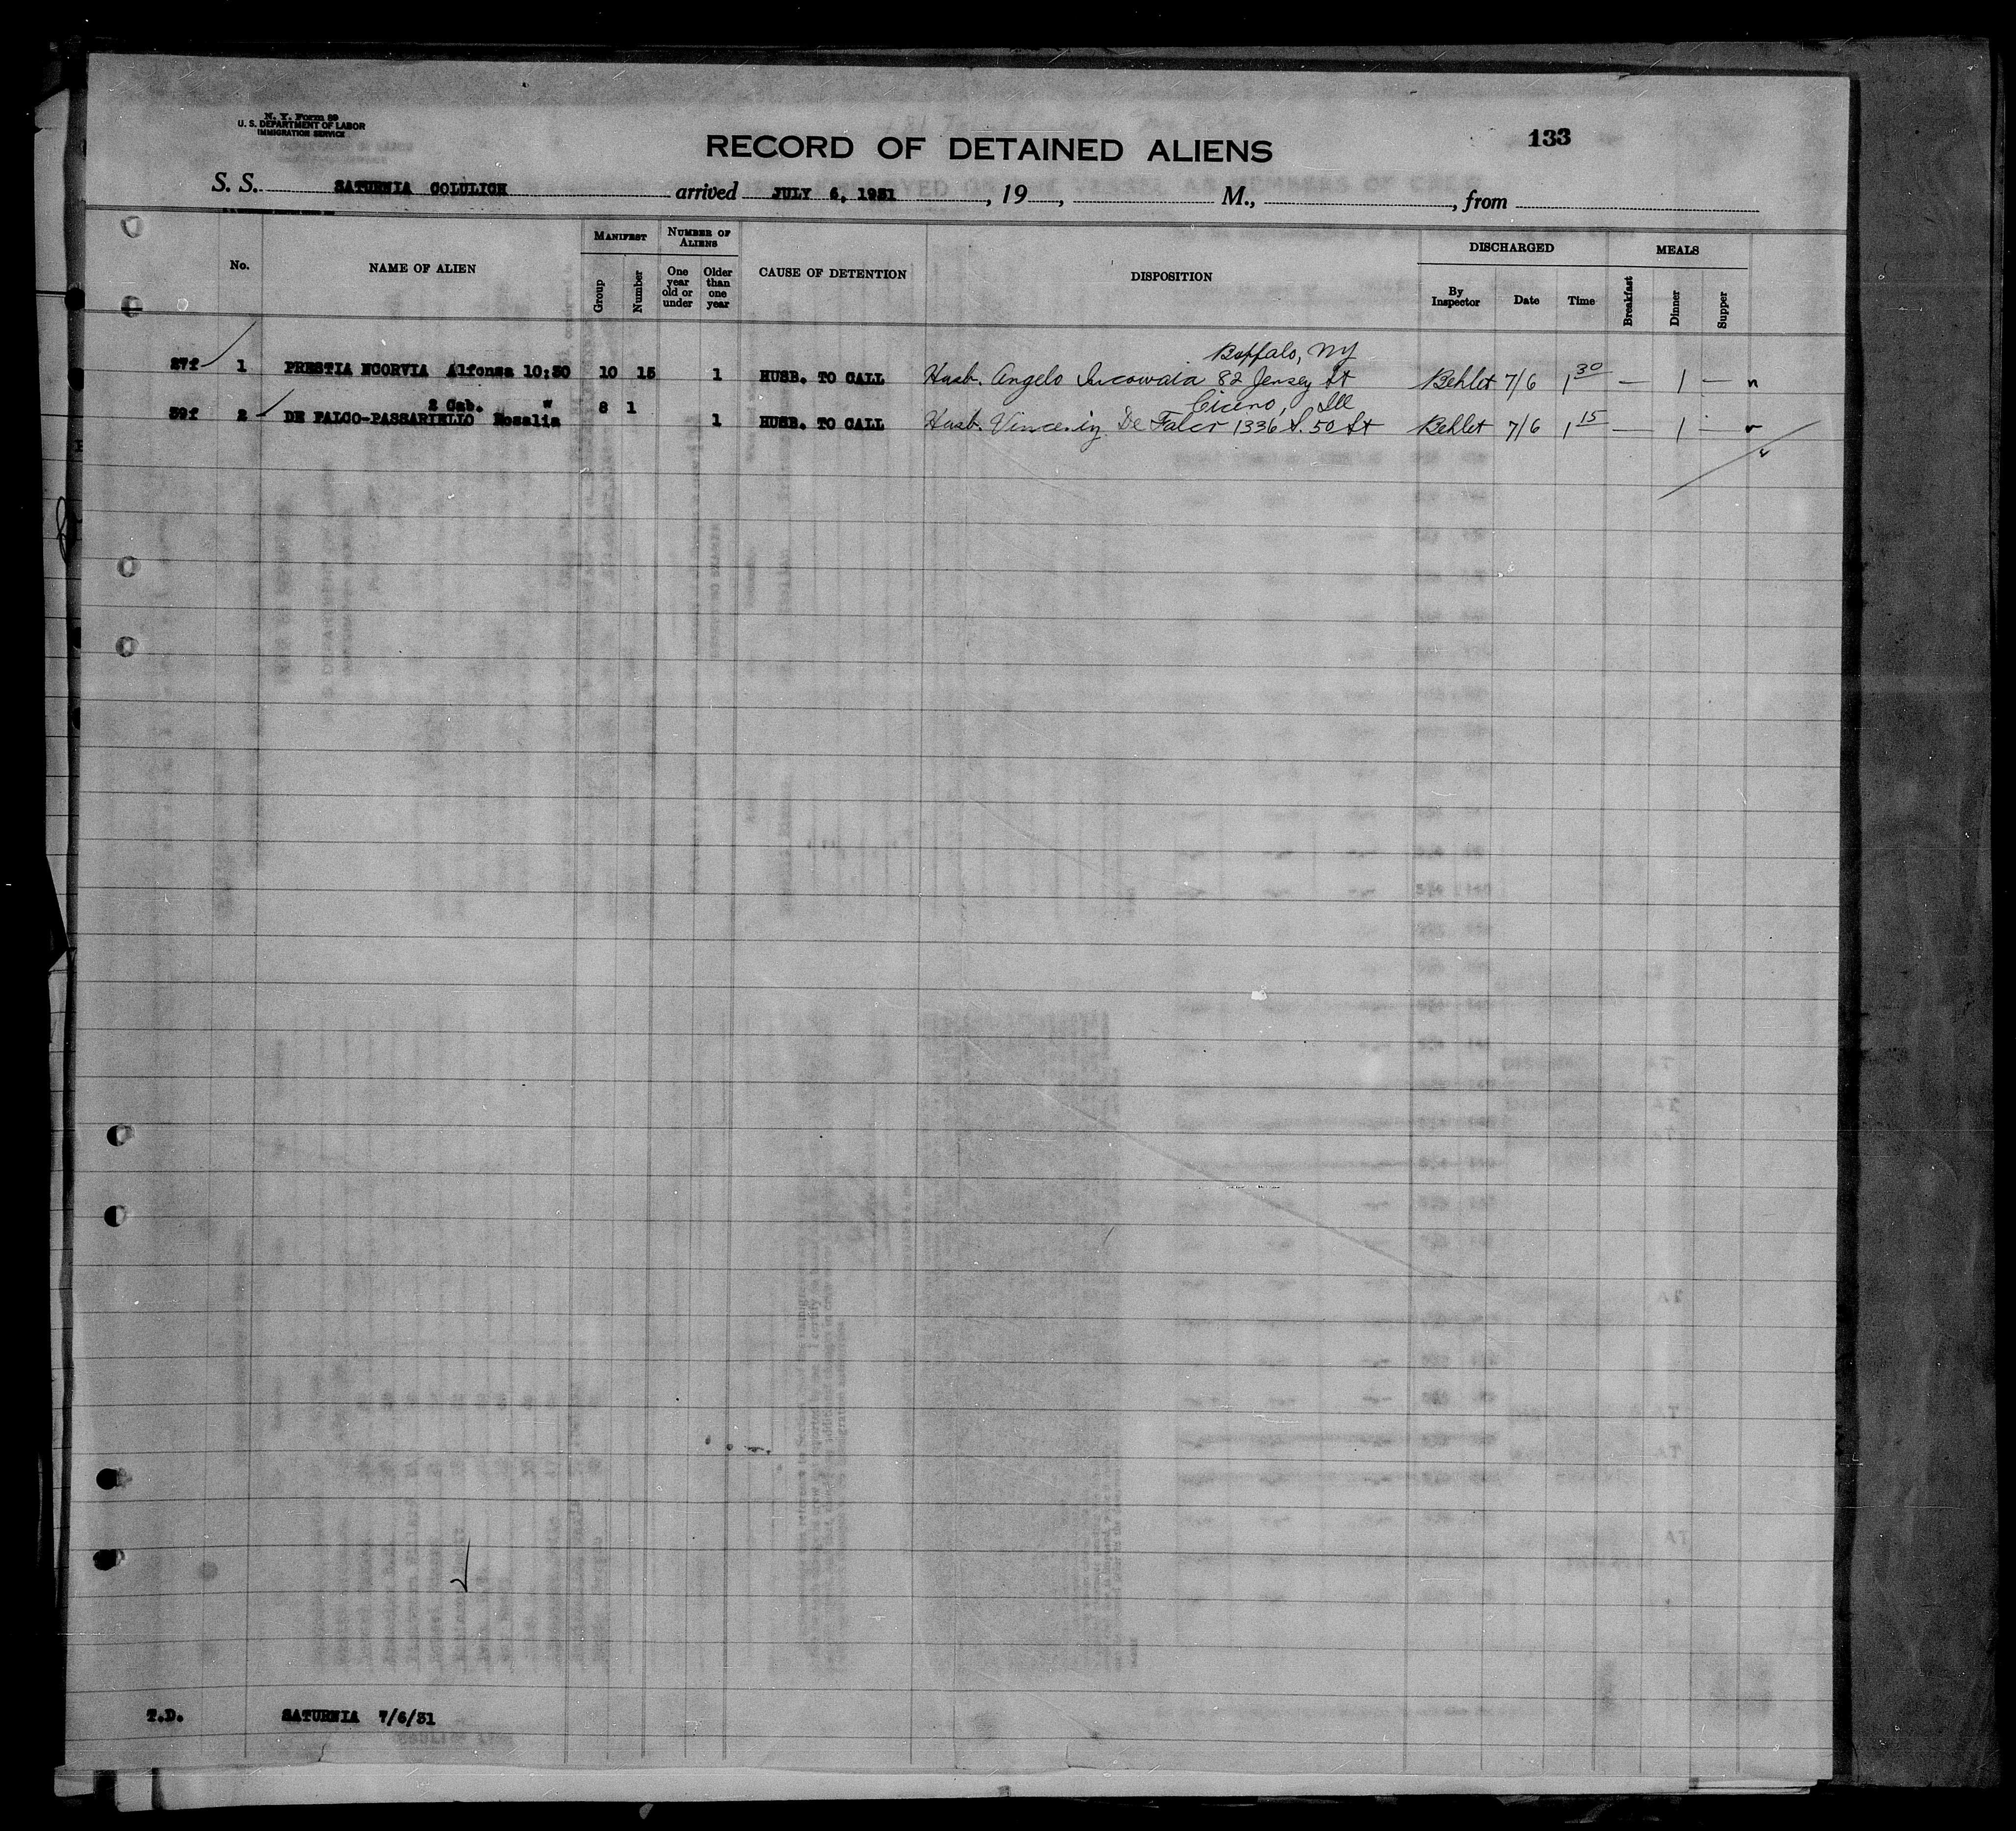 N. Y. Form 89
U. S. DEPARTMENT OF LABOR
IMMIGRATION SERVICE
RECORD OF DETAINED ALIENS
133
S. S. SATURNIA COLULICH arrived JULY 6, 1931, 19 , M., , from
No. NAME OF ALIEN MANIFEST Group Number NUMBER OF ALIENS One year old or under Older than one year CAUSE OF DETENTION DISPOSITION DISCHARGED By Inspector Date Time MEALS Breakfast Dinner Supper
Buffalo, NY
27f 1 PRESTIA NCORVIA Alfonsa 10:30 10 15 1 HUSB. TO CALL Husb. Angelo 82 Jersey St Behlet 7/6 1 30 — 1 — n
2 Cab. " 8 1 Cicero, Ill
39f 2 DE FALCO-PASSARIELLO Rosalia 1 HUSB. TO CALL Husb. De Falco 1336 S. 50 St Behlet 7/6 1 15 — 1 —
T.D. SATURNIA 7/6/31